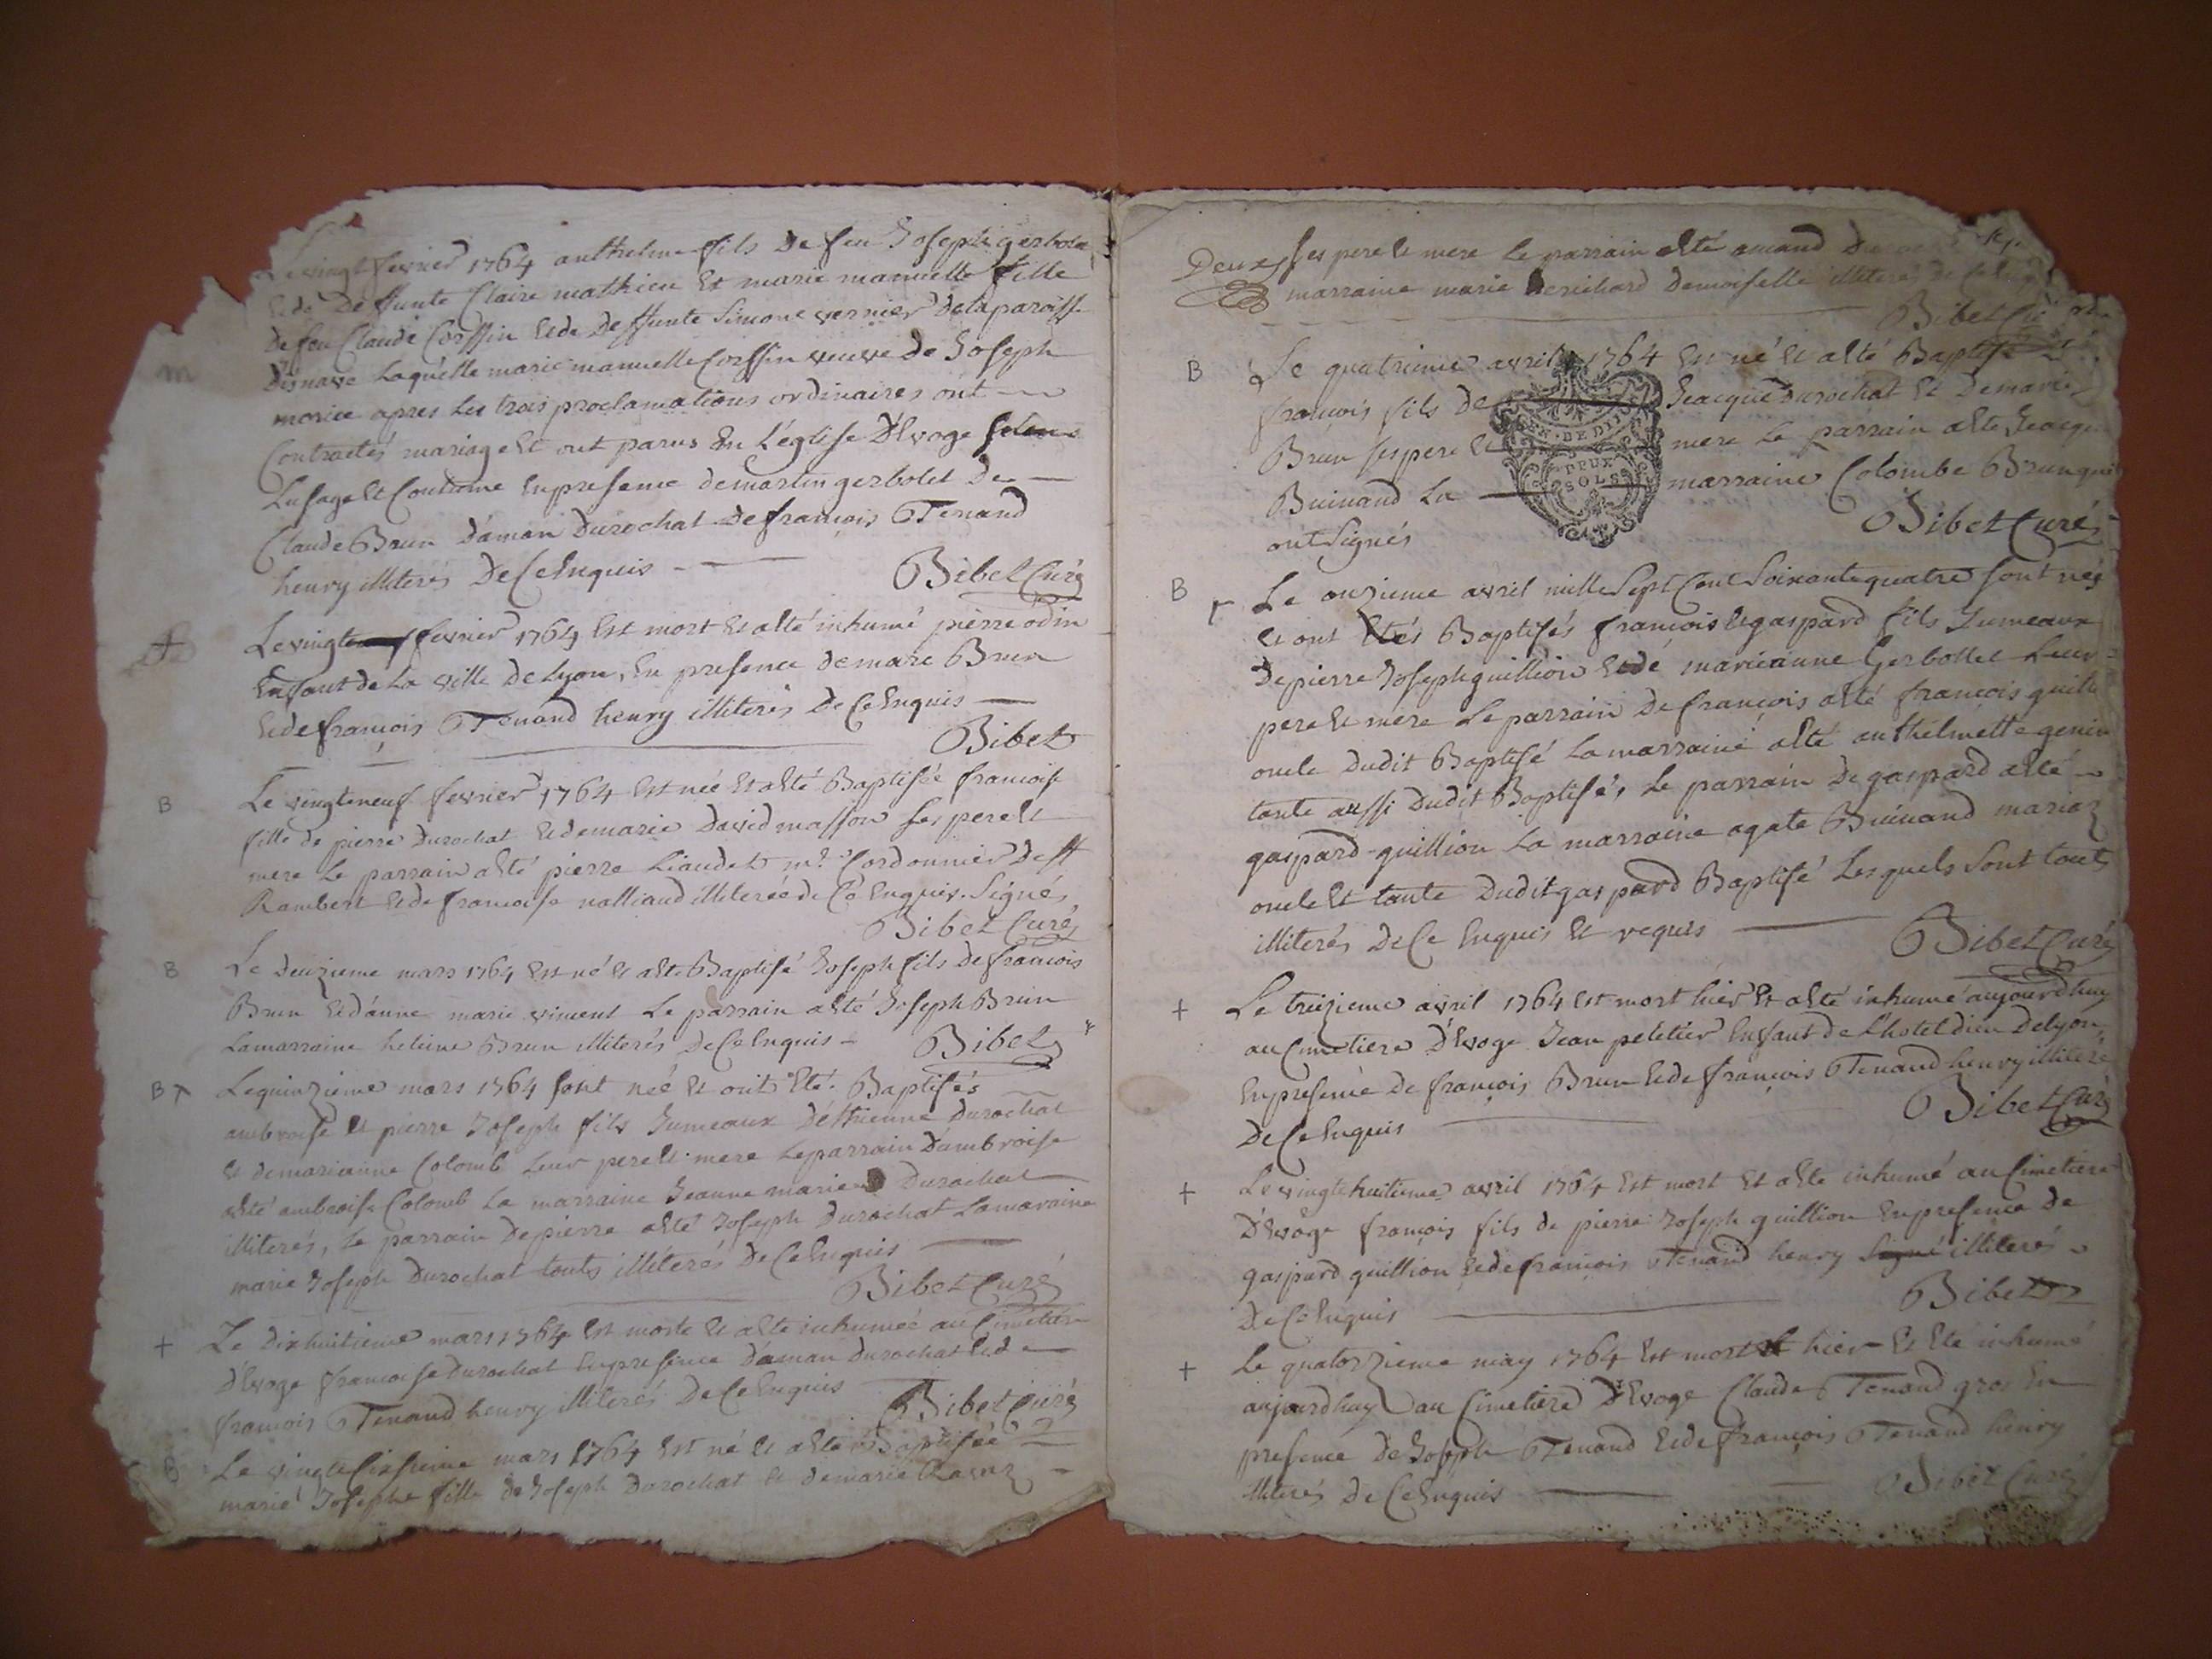 Le vingt fevrier 1764 anthelme fils de feu Joseph gerbolet
et de Deffunte Claire mathieu Et marie manuelle fille
de feu Claude Coffin et de Deffunte Simone vernier de la paroiss
Disnave Laquelle marie manuelle Coffin veuve de Joseph
morice apres les trois proclamations ordinaires ont
Contractés mariage Et ont parus En L'église D'Evoge selon
Lusage Et Coutume En presence de martin gerbolet De
Claude Brun D'aman Durochat De françois Tenand
henry illiterés De Ce Enquis
Bibet Curé
m
Le vingt fevrier 1764 Est mort Et a Eté inhumé pierre odin
Enfant de La ville De Lyon, En presence de marc Brun
Et de françois Tenand henry illiterés De Ce Enquis
Bibet
B
Le vingt neuf fevrier 1764 Est née Et a Eté Baptisée francoise
fille de pierre Durochat Et de marie David masson ses pere Et
mere Le parrain a Eté pierre Liaudet mr Cordonnier De St
Rambert Et de francoise nalliaud illiterée de Ce Enquis. Signé,
Bibet Curé
B
Le Deuzieme mars 1764 Est né Et a Eté Baptisé Joseph fils de francois
Brun Et d'anne marie vincent Le parrain a Eté Joseph Brun
La marraine heleine Brun illiterés De Ce Enquis -
Bibet
B +
Le quinzieme mars 1764 sont né Et ont Eté Baptisés
ambroise Et pierre Joseph fils Jumeaux D'Ethienne Durochat
Et de marianne Colomb Leur pere Et mere Le parrain D'ambroise
a Eté ambroise Colomb La marraine Jeanne marie Durochat
illiterés, Le parrain De pierre a Eté Joseph Durochat La maraine
marie Joseph Durochat touts illiterés De Ce Enquis
Bibet Curé
+
Le Dixhuitieme mars 1764 Est morte Et a Eté inhumée au Cimetiere
D'Evoge francoise Durochat En presence D'aman Durochat Et de
francois Tenand henry illiterés De Ce Enquis
Bibet Curé
B
Le vingt sixsieme mars 1764 Est né Et a Eté Baptisée
marie Josephe fille de Joseph Durochat Et de marie
Deux ses pere Et mere Le parrain a Eté amand
marraine marie Demoiselle illiterés de Ce Enquis
Bibet Curé
B
Le quatrieme avril 1764 Est né Et a Eté Baptisé
françois fils De Jeacque Durochat Et De marie
Brun ses pere Et mere Le parrain a Eté Jeacque
Buinand La marraine Colombe Brun qui
ont Signés
Bibet Curé
GEN. DE DIJ
DEUX
SOLS
B +
Le onzieme avril mille Sept Cent Soixante quatre sont nés
Et ont Etés Baptisés francois Et gaspard fils Jumeaux
De pierre Joseph guillion Et de marieanne Gerbollet Leur
pere Et mere Le parrain De francois a Eté francois guilli
oncle Dudit Baptisé La marraine a Eté anthelmette genin
tante aussi Dudit Baptisé, Le parrain De gaspard a Eté
gaspard guillion La marraine agate Buinand mariez
oncle Et tante Dudit gaspard Baptisé Lesquels sont touts
illiterés De Ce Enquis Et requis
Bibet Curé
+
Le treizieme avril 1764 Est mort hier Et a Eté inhumé aujourdhuy
au Cimetiere D'Evoge Jean peletier Enfant de L'hotel dieu De Lyon,
En presence De françois Brun Et de francois Tenand henry illiteré
De Ce Enquis
Bibet Curé
+
Le vingthuitieme avril 1764 Est mort Et a Eté inhumé au Cimetiere
D'Evoge françois fils de pierre Joseph guillion En presence de
gaspard guillion Et de francois Tenand henry Signé illiterés
De Ce Enquis
Bibet
+
Le quatorzieme may 1764 Est mort hier Et Eté inhumé
aujourdhuy au Cimetiere D'Evoge Claude Tenand gros En
presence De Joseph Tenand Et de françois Tenand henry
illiterés De Ce Enquis
Bibet Curé